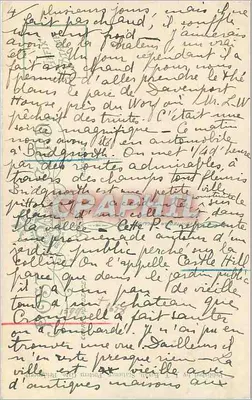 plusieurs jours, mais il ne
fait pas chaud, il souffle
un vent froid J'aimerais
avoir de la chaleur, un vrai
jour cependant il a
fait assez chaud pour nous
permettre d'aller prendre le thé
dans le parc de Davenport
House, près du Worf où Mr L. W
pêchait des truites. C'était une
magnifique – Ce matin
nous avons été en automobile
à Bridgnorth – On met 1/4 d'heure
par des routes admirables, à
travers des champs tout fleuris
Bridgnorth est une petite ville
pittoresque
la vallée – Cette P.C représente
une promenade autour d'un
jardin public perché sur la
colline on l'appelle Castle Hill
parce que dans le jardin public
il y a un pan de vieille
tour d'un château que
Cromwell a fait sauter
ou "bombardé". Je n'ai pu en
trouver une vue. D'ailleurs il
n'en reste presque rien – La
ville est vieille avec
d'antiques maisons aux
CPARAMA